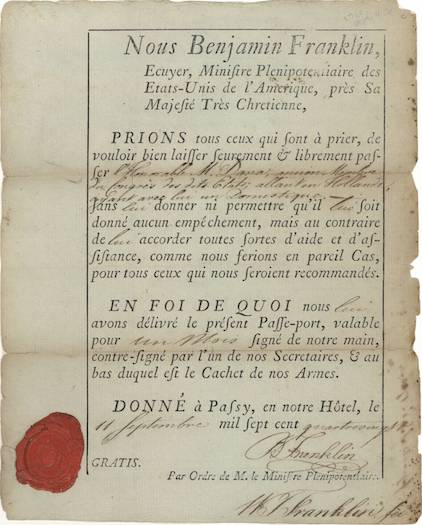 Nous Benjamin Franklin,
Ecuyer, Ministre Plenipotentiaire des
Etats-Unis de l'Amerique, près Sa
Majesté Très Chretienne,
PRIONS tous ceux qui sont à prier, de
vouloir bien laisser seurement & librement pas-
ser l'Honorable M. Dana, ancien Membre
du Congrès des dits Etats, allant en Hollande
ayant avec lui un Domestique
sans lui donner ni permettre qu'il lui soit
donné aucun empéchement, mais au contraire
de lui accorder toutes sortes d'aide et d'as-
sistance, comme nous ferions en pareil Cas,
pour tous ceux qui nous seroient recommandés.
EN FOI DE QUOI nous lui
avons délivré le présent Passe-port, valable
pour un Mois signé de notre main,
contre-signé par l'un de nos Secretaires, & au
bas duquel est le Cachet de nos Armes.
DONNÉ à Passy, en notre Hôtel, le
11 Septembre mil sept cent quatrevingt
B Franklin
GRATIS.
Par Ordre de M. le Ministre Plenipotentiaire.
W. T. Franklin